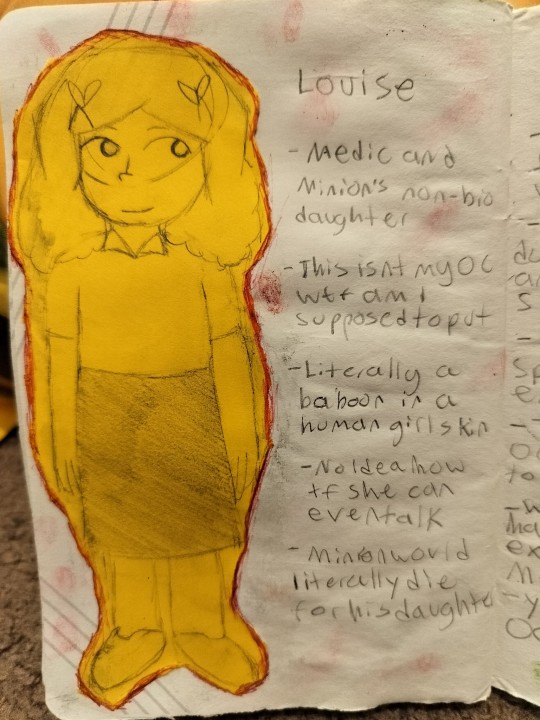 Louise
- Medic and
Minion's non-bio
daughter
- This isnt my OC
wtf am I
supposed to put
- Literally a
baboon in a
human girl skin
- No idea how
tf she can
even talk
- Minion world
literally die
for his daughter